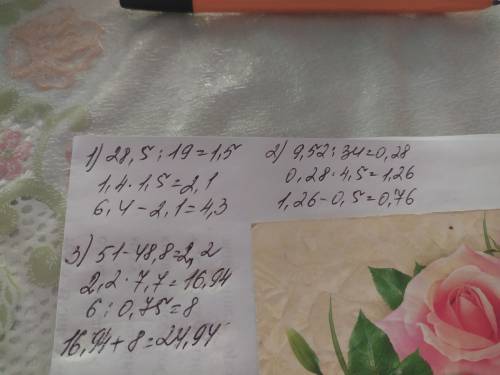 1) 28,5 : 19 = 1,5
1,4 · 1,5 = 2,1
6,4 - 2,1 = 4,3
2) 9,52 : 34 = 0,28
0,28 · 4,5 = 1,26
1,26 - 0,5 = 0,76
3) 51 - 48,8 = 2,2
2,2 · 7,7 = 16,94
6 : 0,75 = 8
16,94 + 8 = 24,94